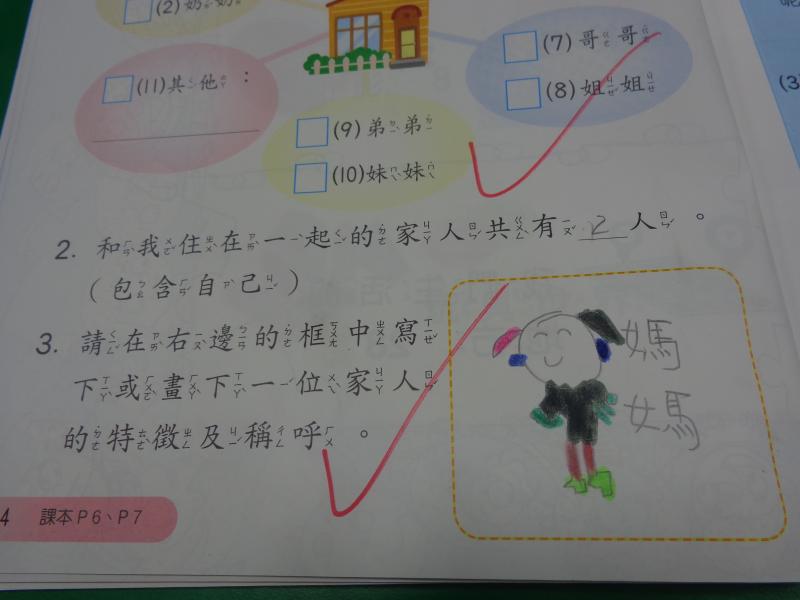 (2) 奶奶
(7) 哥哥
(11) 其他：
(8) 姐姐
(9) 弟弟
(10) 妹妹
2. 和我住在一起的家人共有 2 人。
（包含自己）
3. 請在右邊的框中寫
下或畫下一位家人
的特徵及稱呼。
媽
媽
4 課本P6、P7
(3)